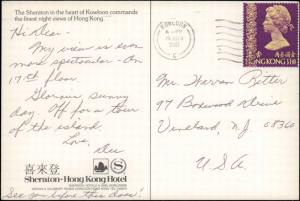 The Sheraton in the heart of Kowloon commands
the finest night views of Hong Kong.
Hi Dear -
My view is even
more spectacular - On
17th floor.
Glorious sunny
day. Off for a tour
of the island.
Love,
Dee
喜來登
Sheraton-Hong Kong Hotel
See you before this does!
KOWLOON
HONG KONG
香港
$1.10
Mr. Hervan Ritter
97 Boxwood Drive
Vineland, N.J. 08360
U.S.A